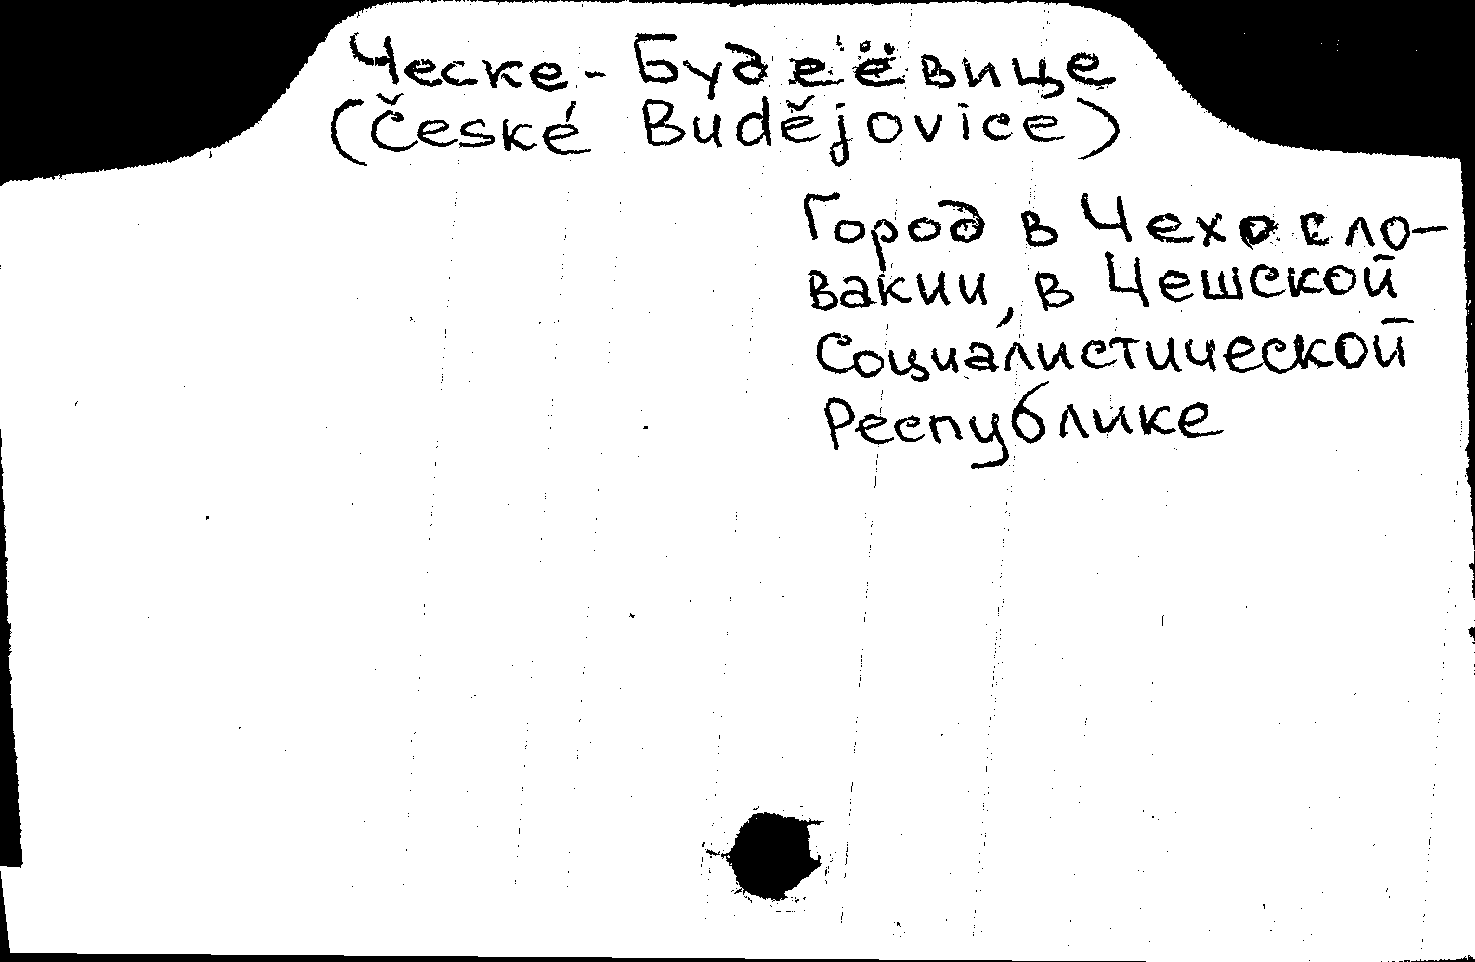 Ческе-Будеёвице
(České Budějovice)
Город в Чехосло-
вакии, в Чешской
Социалистической
Республике